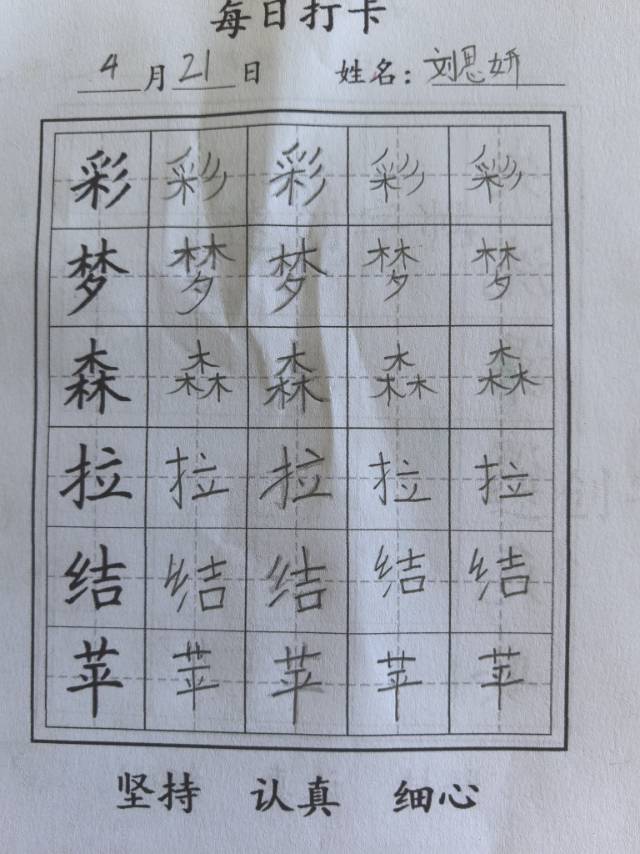 每日打卡
4月21日 姓名：刘思妍
彩 彩 彩 彩 彩
梦 梦 梦 梦 梦
森 森 森 森 森
拉 拉 拉 拉 拉
结 结 结 结 结
苹 苹 苹 苹 苹
坚持 认真 细心